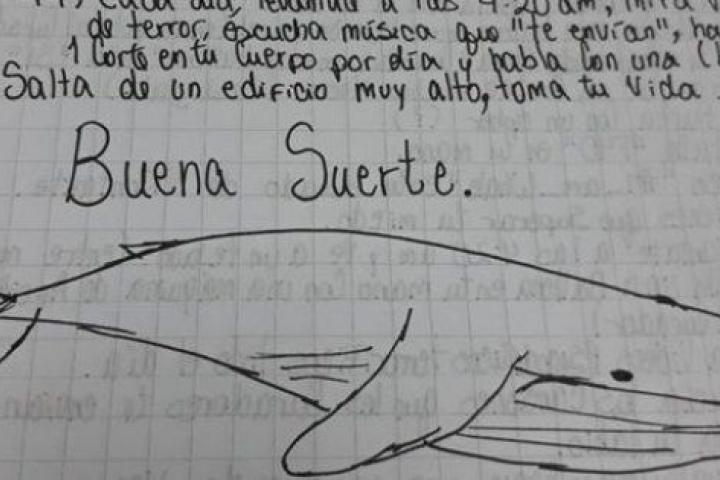 Cada día, levántate a las 4:20 am, mira
de terror, escucha música que "te envían", ha
1 Corte en tu Cuerpo por día y habla con una
Salta de un edificio muy alto, toma tu vida.
Buena Suerte.